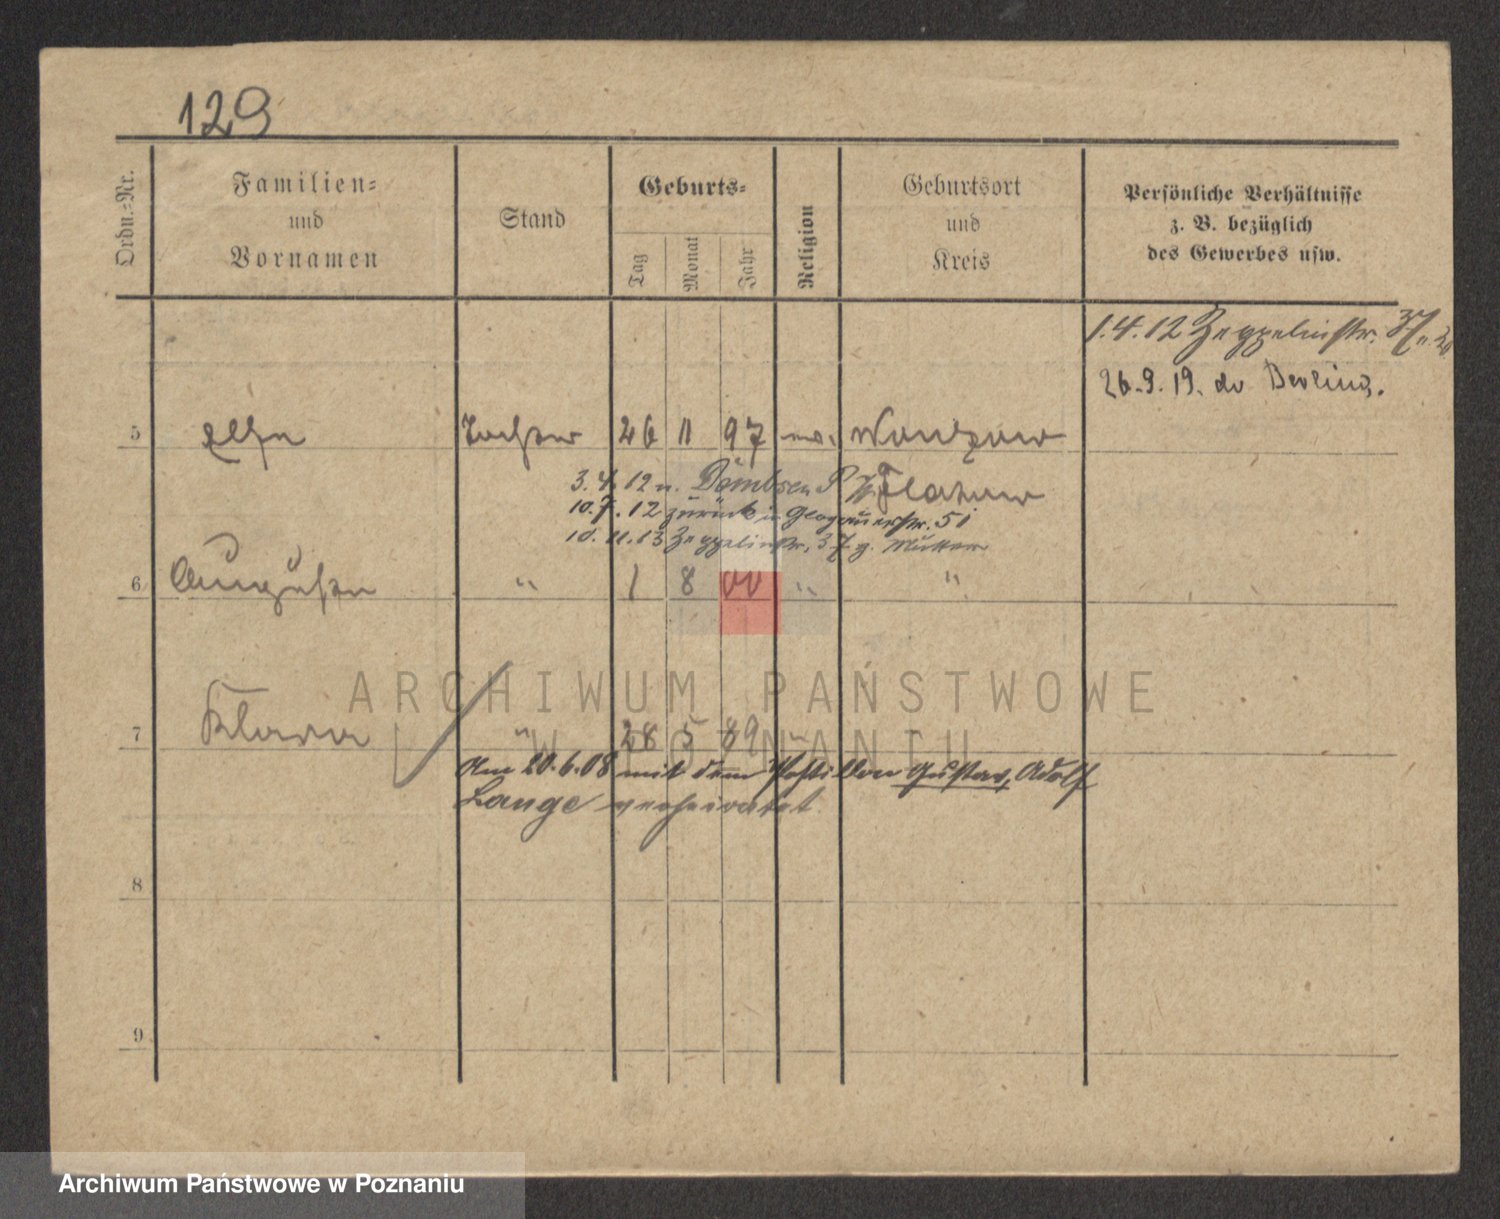 129
Ordn.-Nr.
Familien-
und
Vornamen
Stand
Geburts-
Tag
Monat
Jahr
Religion
Geburtsort
und
Kreis
Persönliche Verhältnisse
z. B. bezüglich
des Gewerbes usw.
1.4.12 Zeppelinstr. 37
26.9.19. do Berlin
5 Tochter 26 11 97 ev.
3.4.12 n. Dombsen Flatow
10.7.12 zurück in Glogauerstr. 51
10.11.13 Zeppelinstr. 37 z. Mutter
6 Auguste " 1 8 00 " "
7 Klara " 28 5 89 " "
Am 20.6.08 mit dem Postillon Gustav, Adolf
Lange verheiratet
8
9
ARCHIWUM PAŃSTWOWE
W POZNANIU
Archiwum Państwowe w Poznaniu